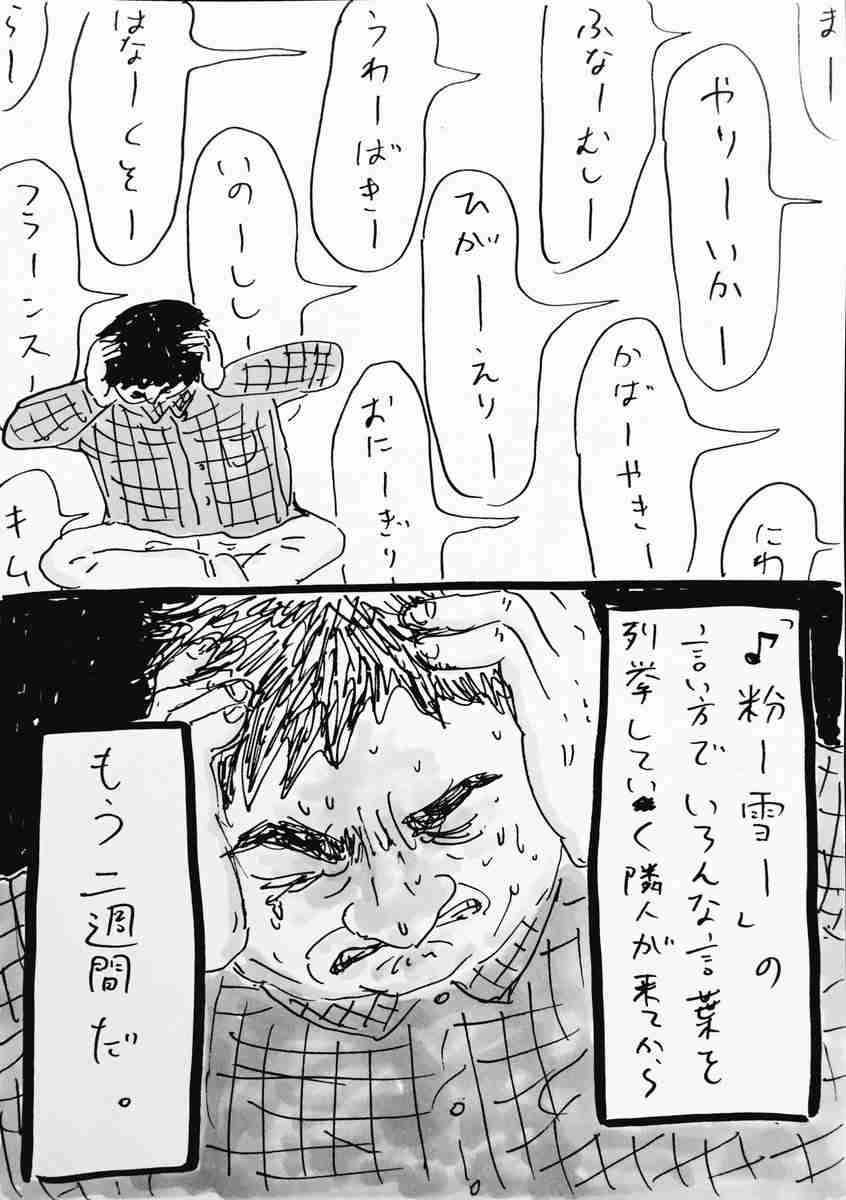 まー
やりーいかー
ふなーむしー
うわーばきー
はなーくそー
らー
ひがーえりー
いのーししー
フラーンスー
かばーやきー
おにーぎり
にわ
キム
「♪粉ー雪ー」の
言い方でいろんな言葉を
列挙していく隣人が来てから
もう二週間だ。